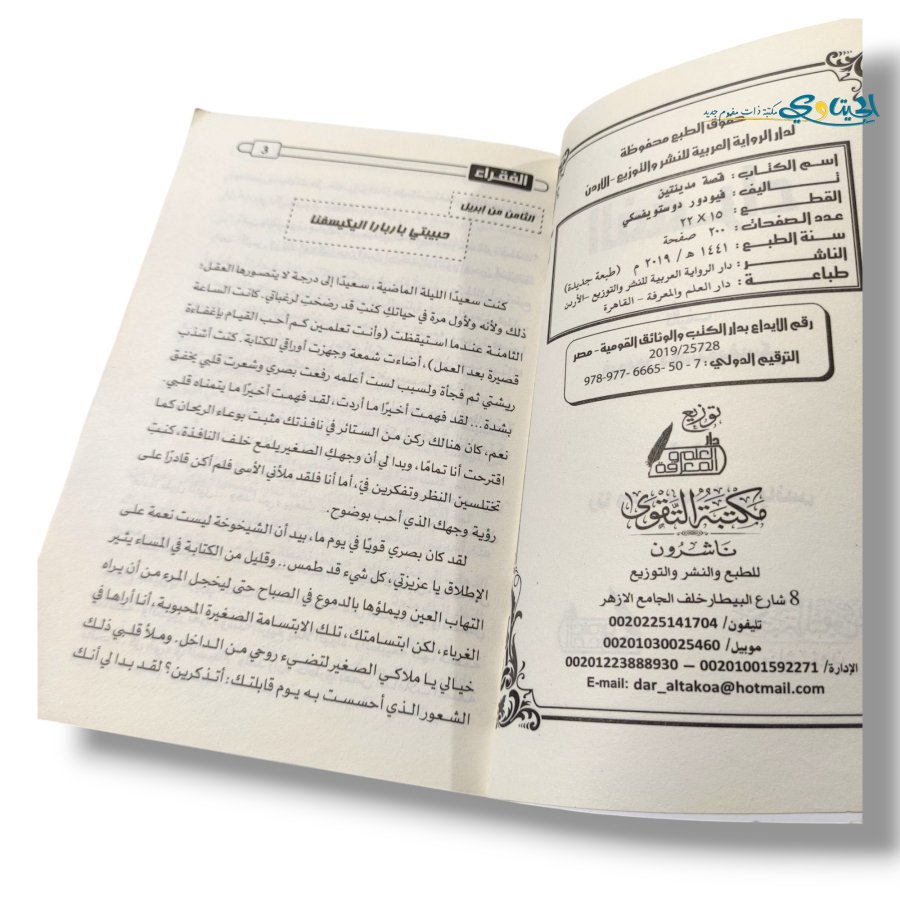 الحيتاوي مكتبة ذات مفهوم جديد
حقوق الطبع محفوظة
لدار الرواية العربية للنشر والتوزيع - الأردن
اسم الكتاب : قصة مدينتين
تأليف : فيودور دوستويفسكي
القطع : ١٥ X ٢٢
عدد الصفحات : ٢٠٠ صفحة
سنة الطبع : ١٤٤١ هـ / ٢٠١٩ م (طبعة جديدة)
الناشر : دار الرواية العربية للنشر والتوزيع - الأردن
طباعة : دار العلم والمعرفة - القاهرة
رقم الايداع بدار الكتب والوثائق القومية - مصر
2019/25728
الترقيم الدولي : 7 - 50 - 6665 -977-978
توزيع
دار
العلم و
المعرفة
مكتبة التقوى
ناشرون
للطبع والنشر والتوزيع
8 شارع البيطار خلف الجامع الازهر
تليفون/ 0020225141704
موبيل/ 00201030025460
الإدارة/ 00201001592271 — 00201223888930
E-mail: dar_altakoa@hotmail.com
3
الفقراء
الثامن من ابريل
حبيبتي باربارا اليكيسفنا
كنت سعيدًا الليلة الماضية، سعيدًا إلى درجة لا يتصورها العقل؛
ذلك ولأنه ولأول مرة في حياتكِ كنتِ قد رضختِ لرغباتي. كانت الساعة
الثامنة عندما استيقظت (وأنت تعلمين كم أحب القيام بإغفاءة
قصيرة بعد العمل)، أضاءت شمعة وجهزت أوراقي للكتابة. كنت أشذب
ريشتي ثم فجأة ولسبب لست أعلمه رفعت بصري وشعرت قلبي يخفق
بشدة... لقد فهمت أخيرًا ما أردت، لقد فهمت أخيرًا ما يتمناه قلبي.
نعم، كان هنالك ركن من الستائر في نافذتك مثبت بوعاء الريحان كما
اقترحت أنا تمامًا، وبدا لي أن وجهك الصغير يلمع خلف النافذة، كنتِ
تختلسين النظر وتفكرين فيّ، أما أنا فلقد ملأني الأسى فلم أكن قادرًا على
رؤية وجهك الذي أحب بوضوح.
لقد كان بصري قويًا في يوم ما، بيد أن الشيخوخة ليست نعمة على
الإطلاق يا عزيزتي، كل شيء قد طمس.. وقليل من الكتابة في المساء يثير
التهاب العين ويملؤها بالدموع في الصباح حتى ليخجل المرء من أن يراه
الغرباء، لكن ابتسامتك، تلك الابتسامة الصغيرة المحبوبة، أنا أراها في
خيالي يا ملاكي الصغير لتضيء روحي من الداخل. وملأ قلبي ذلك
الشعور الذي أحسست به يوم قابلتك: أتذكرين؟ لقد بدا لي أنك